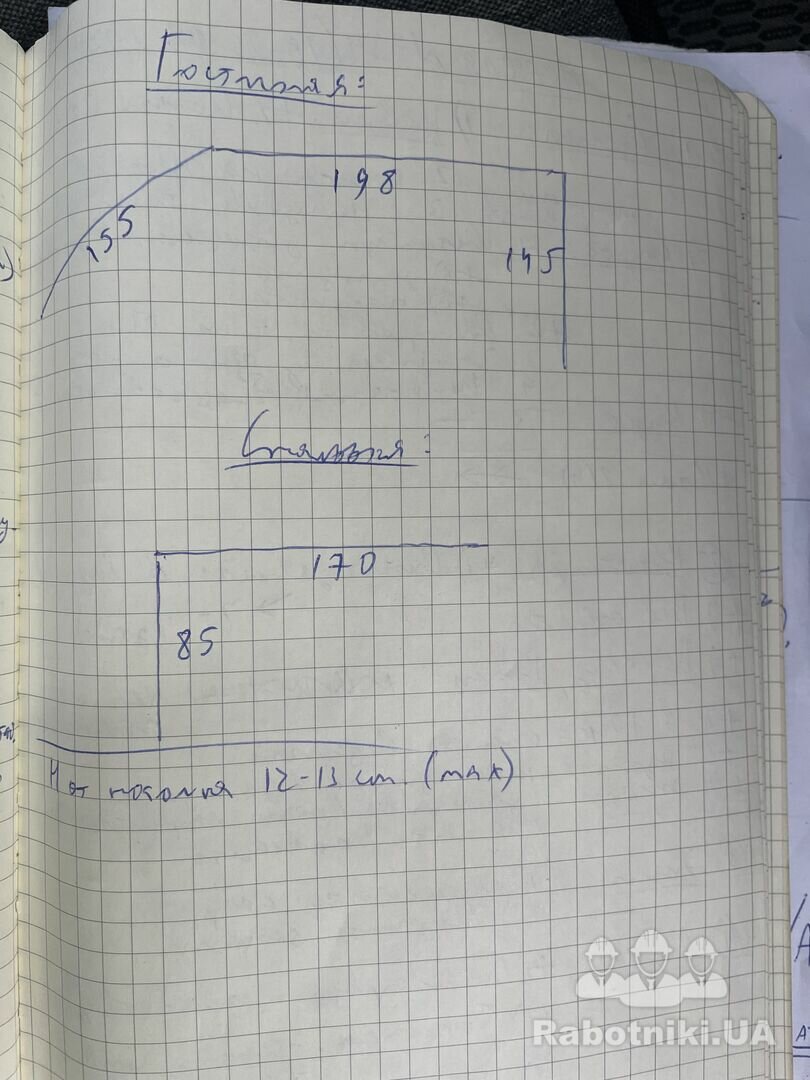 Гостиная:
198
155
145
Спальня:
170
85
H от потолка 12-13 cm (max)
Rabotniki.UA